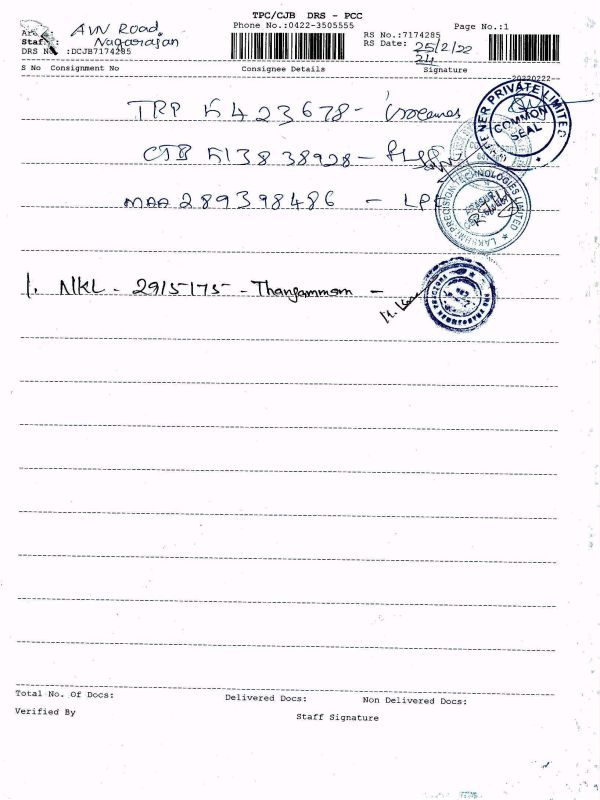 TPC/CJB DRS - PCC
Phone No.:0422-3505555
Page No.:1
AVN Road,
RS No.:7174285
Staff :
Nagarajan
RS Date: 25/2/22
DRS No :DCJB7174285
24
S No Consignment No
Consignee Details
Signature
20220222
TRP 5423678 -
CJB 513838928 -
MAA 289398486 - LPT
1. NKL - 2915175 - Thangammam -
PRIVATE LIMITED
COMMON SEAL
LAKSHMI PRECISION TECHNOLOGIES LIMITED
Total No. Of Docs:
Delivered Docs:
Non Delivered Docs:
Verified By
Staff Signature